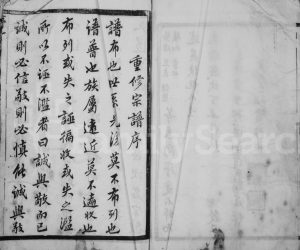 重修宗譜序
譜布也世系先後莫不布列也
譜普也族屬遠近莫不遍收也
布列或失之誣搧收或失之濫
所以不誣不濫者曰誠與敬而已
誠則必信敬則必慎能誠與敬
FamilySearch